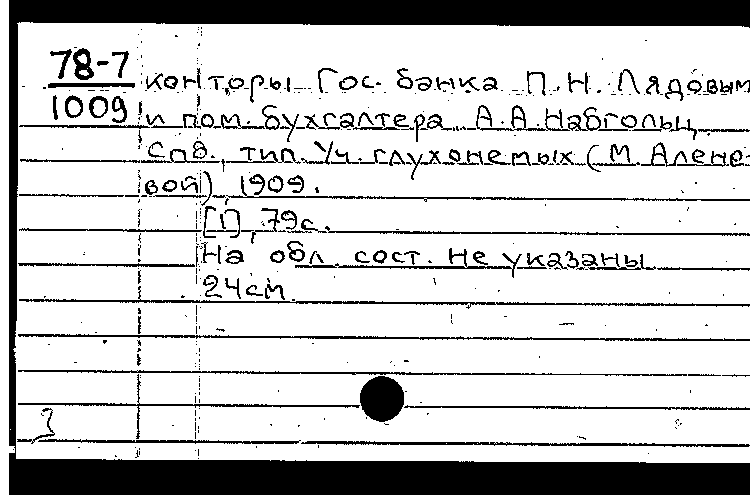 78-7
1009
конторы Гос. банка П.Н. Лядовым
и пом. бухгалтера А.А. Набгольц.
Спб., тип. Уч. глухонемых (М. Алене-
вой), 1909.
[1], 79с.
На обл. сост. не указаны
24см.
3